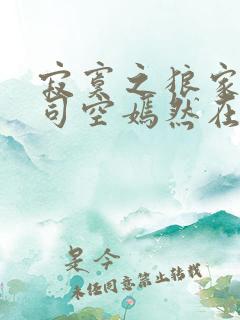 寂寞之狼家
司空嫣然在
是今
未经同意禁止转载